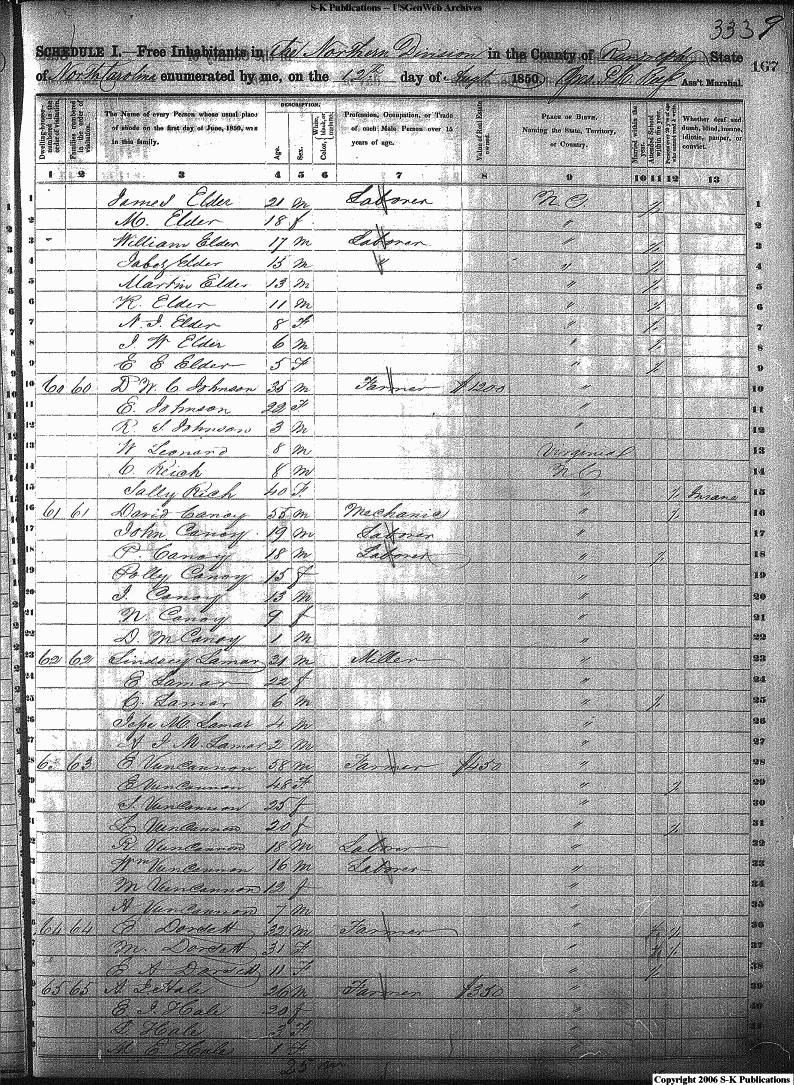 S-K Publications -- USGenWeb Archives
333 9
SCHEDULE I.—Free Inhabitants in the Northern Division in the County of Randolph State
167
of North Carolina enumerated by me, on the 12th day of Augt 1850. Ass't Marshal.
Dwelling-houses numbered in the order of visitation.
Families numbered in the order of visitation.
The Name of every Person whose usual place of abode on the first day of June, 1850, was in this family.
DESCRIPTION.
Age.
Sex.
Color, White, black, or mulatto.
Profession, Occupation, or Trade of each Male Person over 15 years of age.
Value of Real Estate owned.
PLACE OF BIRTH. Naming the State, Territory, or Country.
Married within the year.
Attended School within the year.
Persons over 20 y'rs of age who cannot read & write.
Whether deaf and dumb, blind, insane, idiotic, pauper, or convict.
1 2 3 4 5 6 7 8 9 10 11 12 13
1 James Elder 21 m Laborer N C / 1
2 M. Elder 18 f " 2
3 William Elder 17 m Laborer " / 3
4 Jabez Elder 15 m " / 4
5 Martin Elder 13 m " / 5
6 K. Elder 11 m " / 6
7 N. J. Elder 8 F " / 7
8 J W Elder 6 m " / 8
9 E E Elder 5 F " / 9
10 60 60 Dr W. C Johnson 35 m Farmer $1200 " 10
11 E. Johnson 22 F " 11
12 R. S Johnson 3 m " 12
13 W Leonard 8 m Virginia 13
14 C Reich 8 m N C 14
15 Sally Rich 40 F " / Insane 15
16 61 61 David Canoy 55 m Mechanic " / 16
17 John Canoy 19 m Laborer " 17
18 P. Canoy 18 m Laborer " / 18
19 Polly Canoy 15 f " 19
20 J. Canoy 13 m " 20
21 N. Canoy 9 f " 21
22 D. M Canoy 1 m " 22
23 62 62 Lindsey Lamar 31 m Miller " 23
24 E Lamar 22 f "
25 C. Lamar 6 m " / 25
26 M. Lamar 4 m " 26
27 A J M. Lamar 2 m " 27
28 63 63 E VunCannon 58 m Farmer $450 " 28
E VunCannon 48 F " / 29
S VunCannon 25 f " 30
S VunCannon 20 f " / 31
R VunCannon 18 m Laborer " 32
Wm VunCannon 16 m Laborer " 33
M VunCannon 12 f " 34
A VunCannon 7 m " 35
64 64 E Dorsett 32 m Farmer " / / 36
M. Dorsett 31 F " / / 37
E A Dorsett 11 F " / 38
65 65 A. J Hale 26 m Farmer $350 " 39
E. J. Hale 20 f " 40
S Hale 3 F "
M. E Hale 1 F "
25 m
Copyright 2006 S-K Publications